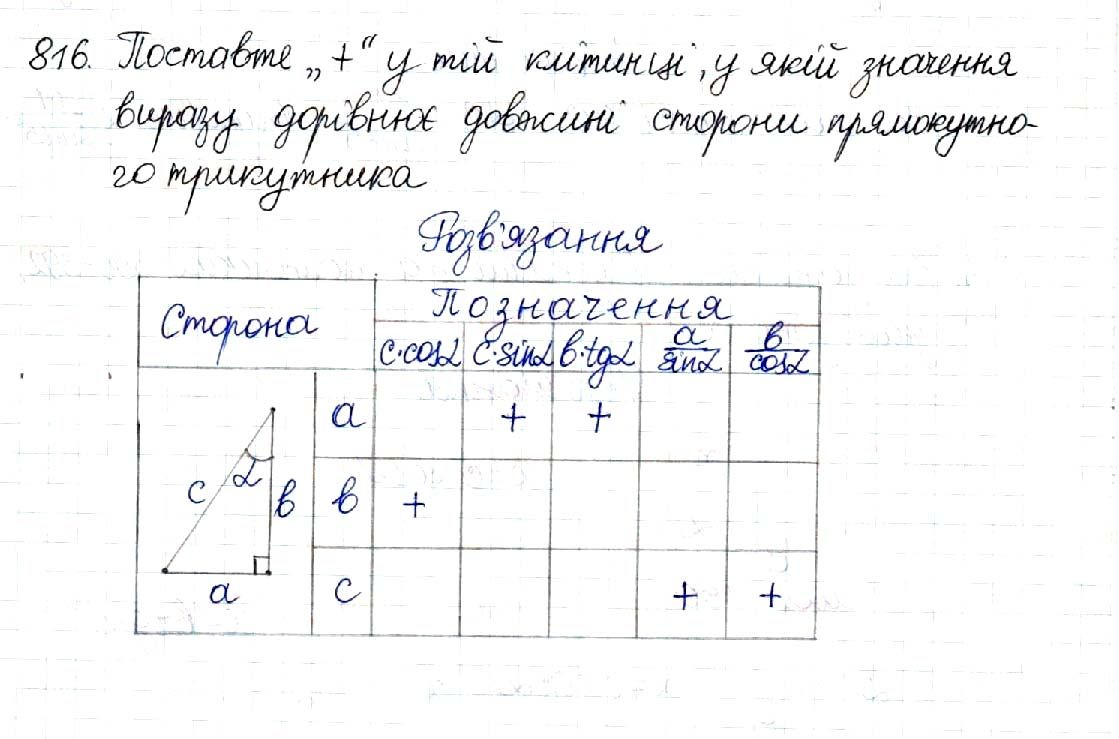 816. Поставте „+“ у тій клітинці, у якій значення
виразу дорівнює довжині сторони прямокутно-
го трикутника
Розв'язання
Сторона Позначення
c·cosα c·sinα b·tgα a/sinα b/cosα
a + +
c α b b +
a c + +